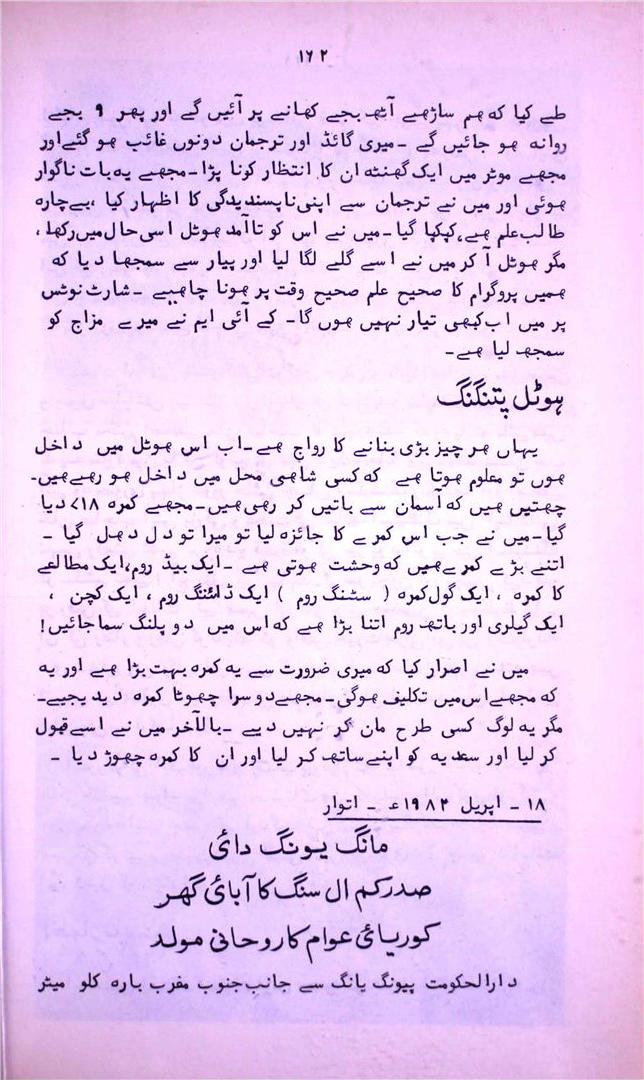 ۱۶۲
طے کیا کہ ہم ساڑھے آٹھ بجے کھانے پر آئیں گے اور پھر ۹ بجے
روانہ ہو جائیں گے ۔ میری گائڈ اور ترجمان دونوں غائب ہو گئے اور
مجھے موٹر میں ایک گھنٹہ ان کا انتظار کرنا پڑا۔ مجھے یہ بات ناگوار
ہوئی اور میں نے ترجمان سے اپنی ناپسندیدگی کا اظہار کیا ، بے چارہ
طالب علم ہے، کپکپا گیا۔ میں نے اس کو تاآمد ہوٹل اسی حال میں رکھا ،
مگر ہوٹل آ کر میں نے اسے گلے لگا لیا اور پیار سے سمجھا دیا کہ
ہمیں پروگرام کا صحیح علم صحیح وقت پر ہونا چاہیے ۔ شارٹ نوٹس
پر میں اب کبھی تیار نہیں ہوں گا۔ کے آئی ایم نے میرے مزاج کو
سمجھ لیا ہے ۔
ہوٹل پتنگنگ
یہاں ہر چیز بڑی بنانے کا رواج ہے۔ اب اس ہوٹل میں داخل
ہوں تو معلوم ہوتا ہے کہ کسی شاہی محل میں داخل ہو رہے ہیں۔
چھتیں ہیں کہ آسمان سے باتیں کر رہی ہیں۔ مجھے کمرہ ۷۱۸ دیا
گیا۔ میں نے جب اس کمرے کا جائزہ لیا تو میرا تو دل دھل گیا ۔
اتنے بڑے کمرے ہیں کہ وحشت ہوتی ہے ۔ ایک بیڈ روم، ایک مطالعے
کا کمرہ ، ایک گول کمرہ ( سٹنگ روم ) ایک ڈائننگ روم ، ایک کچن ،
ایک گیلری اور باتھ روم اتنا بڑا ہے کہ اس میں دو پلنگ سما جائیں!
میں نے اصرار کیا کہ میری ضرورت سے یہ کمرہ بہت بڑا ہے اور یہ
کہ مجھے اس میں تکلیف ہوگی۔ مجھے دوسرا چھوٹا کمرہ دیدیجیے۔
مگر یہ لوگ کسی طرح مان کر نہیں دیے ۔ بالآخر میں نے اسے قبول
کر لیا اور سعدیہ کو اپنے ساتھ کر لیا اور ان کا کمرہ چھوڑ دیا ۔
۱۸ ۔ اپریل ۱۹۸۲ء ۔ اتوار
مانگ یونگ دائی
صدر کم ال سنگ کا آبائی گھر
کوریائی عوام کا روحانی مولد
دارالحکومت پیونگ یانگ سے جانب جنوب مغرب بارہ کلو میٹر